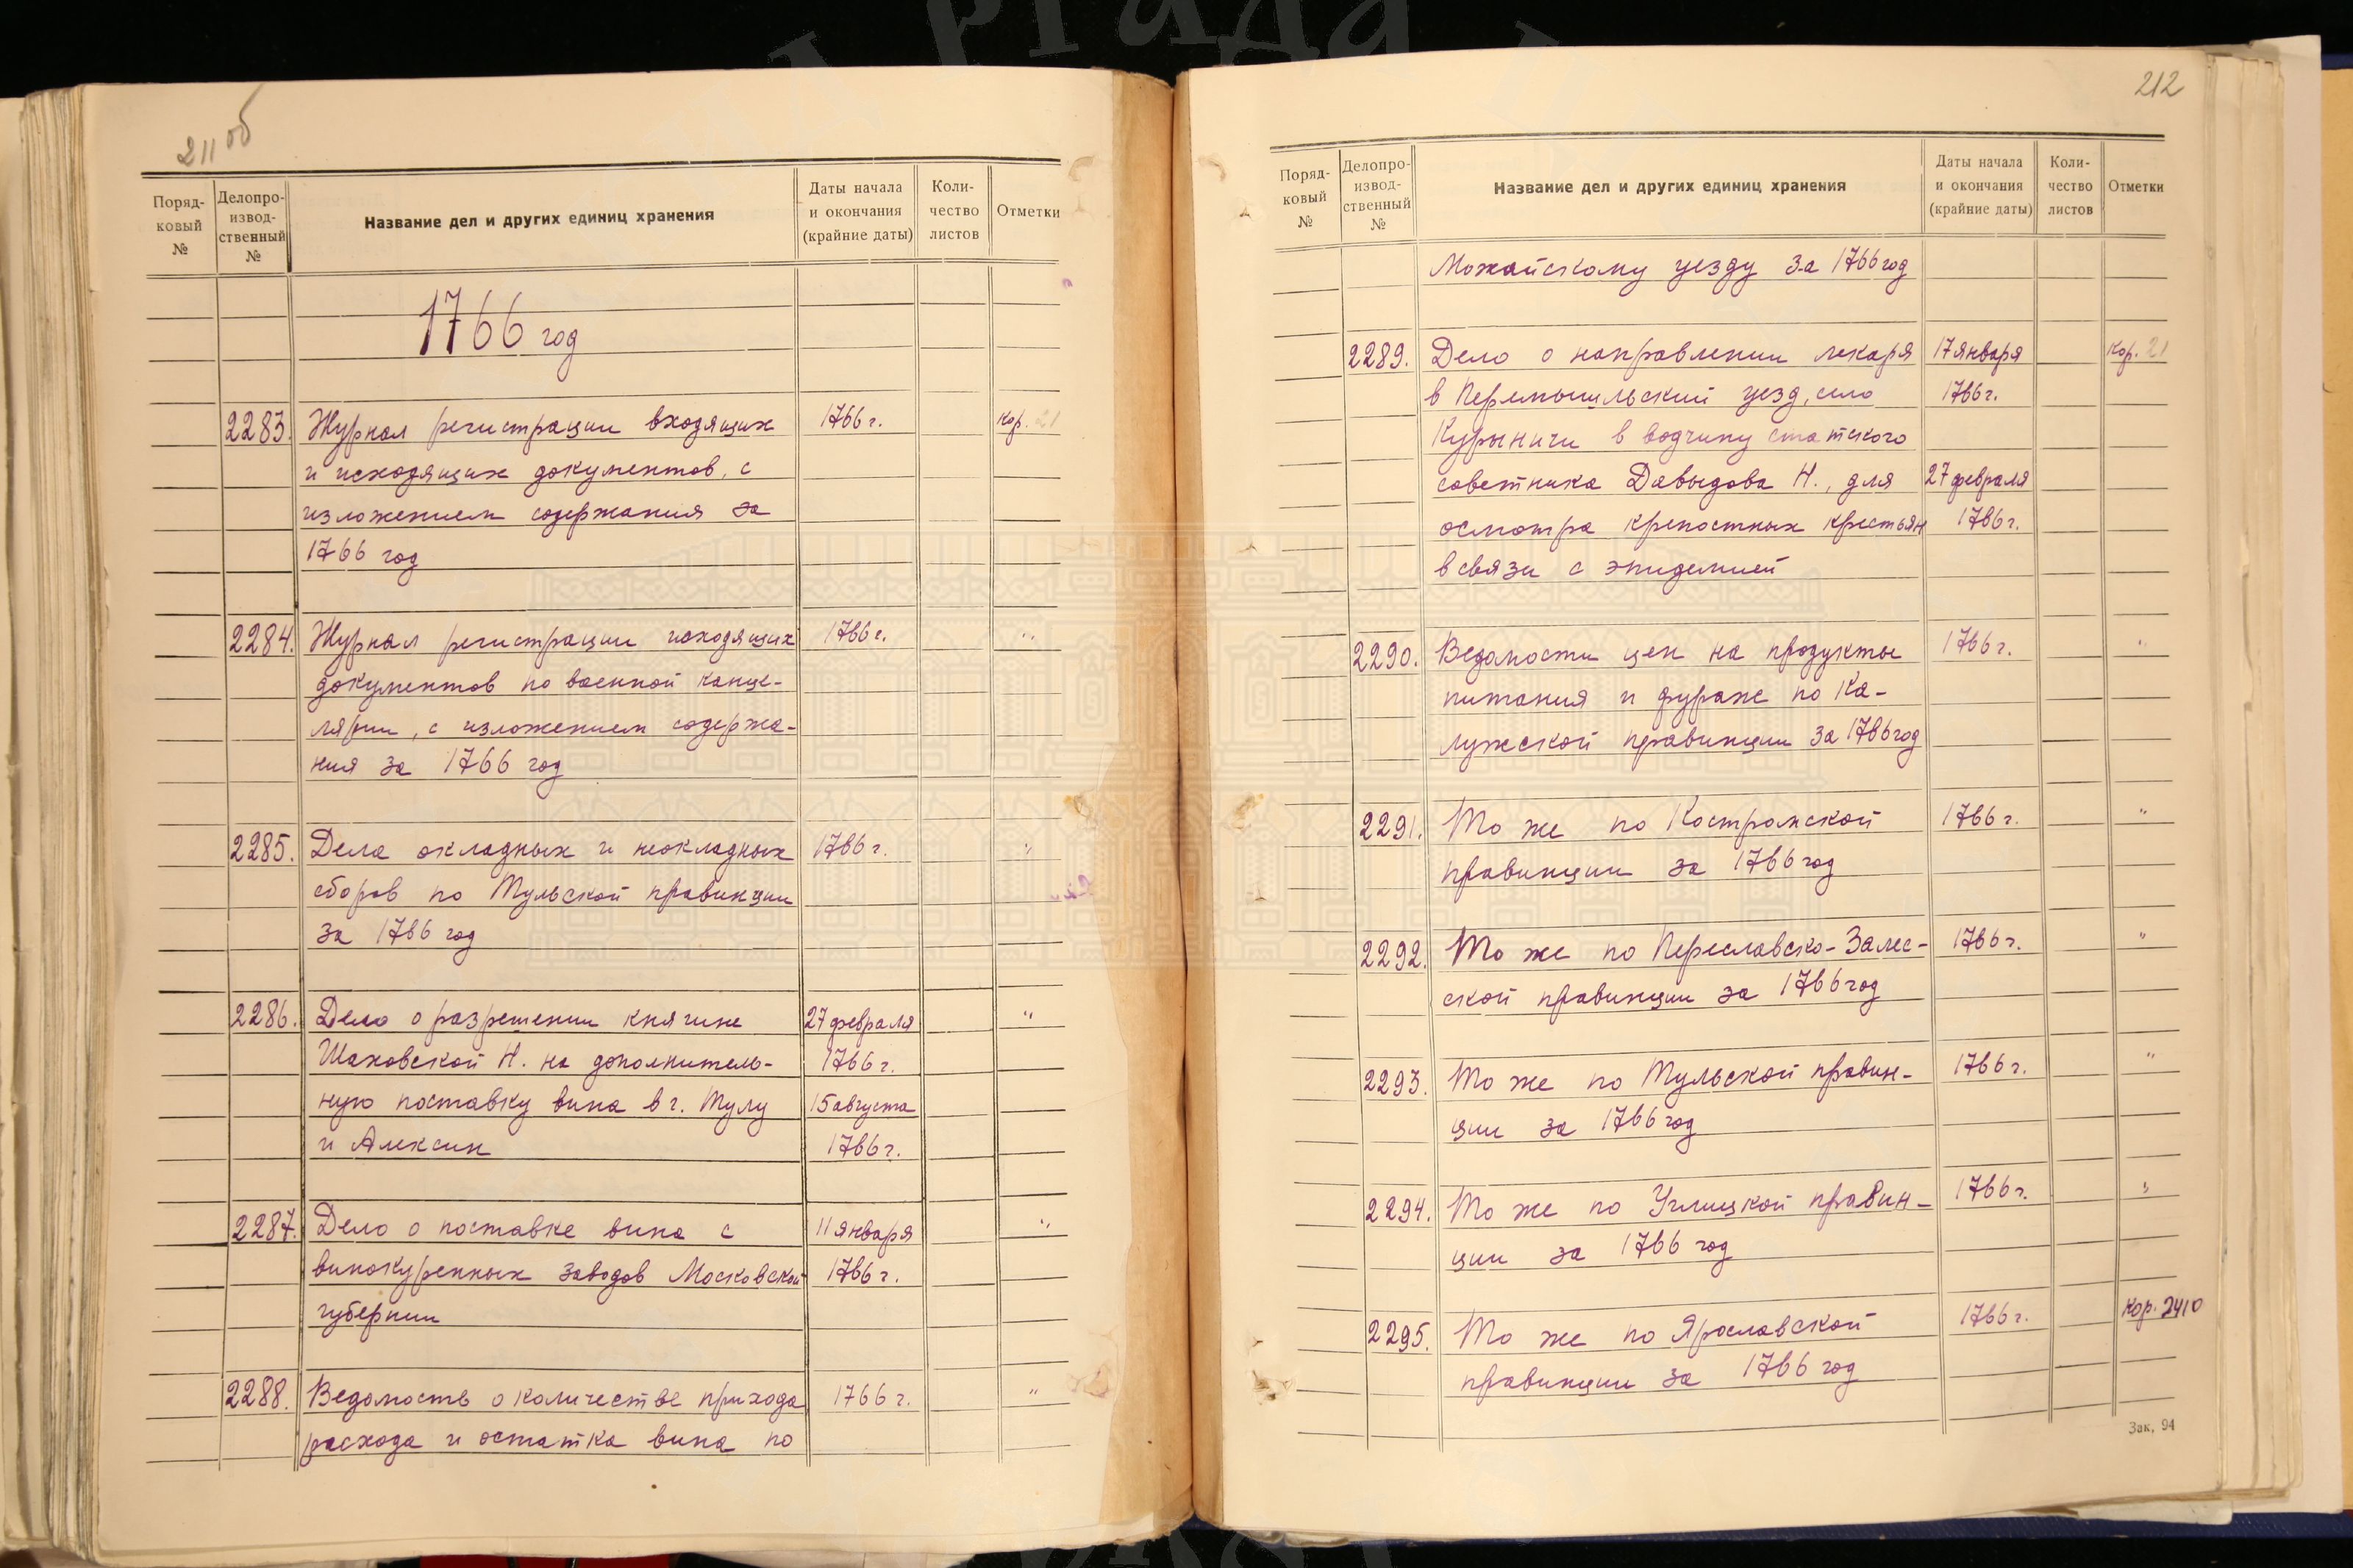 211об
Поряд-
ковый
№
Делопро-
извод-
ственный
№
Название дел и других единиц хранения
Даты начала
и окончания
(крайние даты)
Коли-
чество
листов
Отметки
1766 год
2283. Журнал регистрации входящих 1766 г. кор. 21
и исходящих документов, с
изложением содержания за
1766 год
2284. Журнал регистрации исходящих 1766 г. "
документов по военной канце-
лярии, с изложением содержа-
ния за 1766 год
2285. Дела окладных и неокладных 1766 г. "
сборов по Тульской провинции
за 1766 год
2286. Дело о разрешении княгине 27 февраля "
Шаховской Н. на дополнитель- 1766 г.
ную поставку вина в г. Тулу 15 августа
и Алексин 1766 г.
2287. Дело о поставке вина с 11 января "
винокуренных заводов Московской 1766 г.
губернии
2288. Ведомость о количестве прихода 1766 г. "
расхода и остатка вина по
212
Поряд-
ковый
№
Делопро-
извод-
ственный
№
Название дел и других единиц хранения
Даты начала
и окончания
(крайние даты)
Коли-
чество
листов
Отметки
Можайскому уезду за 1766 год
2289. Дело о направлении лекаря 17 января кор. 21
в Перемышльский уезд, село 1766 г.
Курыничи в вотчину статского
советника Давыдова Н., для 27 февраля
осмотра крепостных крестьян 1766 г.
в связи с эпидемией
2290. Ведомости цен на продукты 1766 г. "
питания и фураже по Ка-
лужской провинции за 1766 год
2291. То же по Костромской 1766 г. "
провинции за 1766 год
2292. То же по Переславско-Залес- 1766 г. "
ской провинции за 1766 год
2293. То же по Тульской провин- 1766 г. "
ции за 1766 год
2294. То же по Углицкой провин- 1766 г. "
ции за 1766 год
2295. То же по Ярославской 1766 г. кор. 2410
провинции за 1766 год
Зак. 94